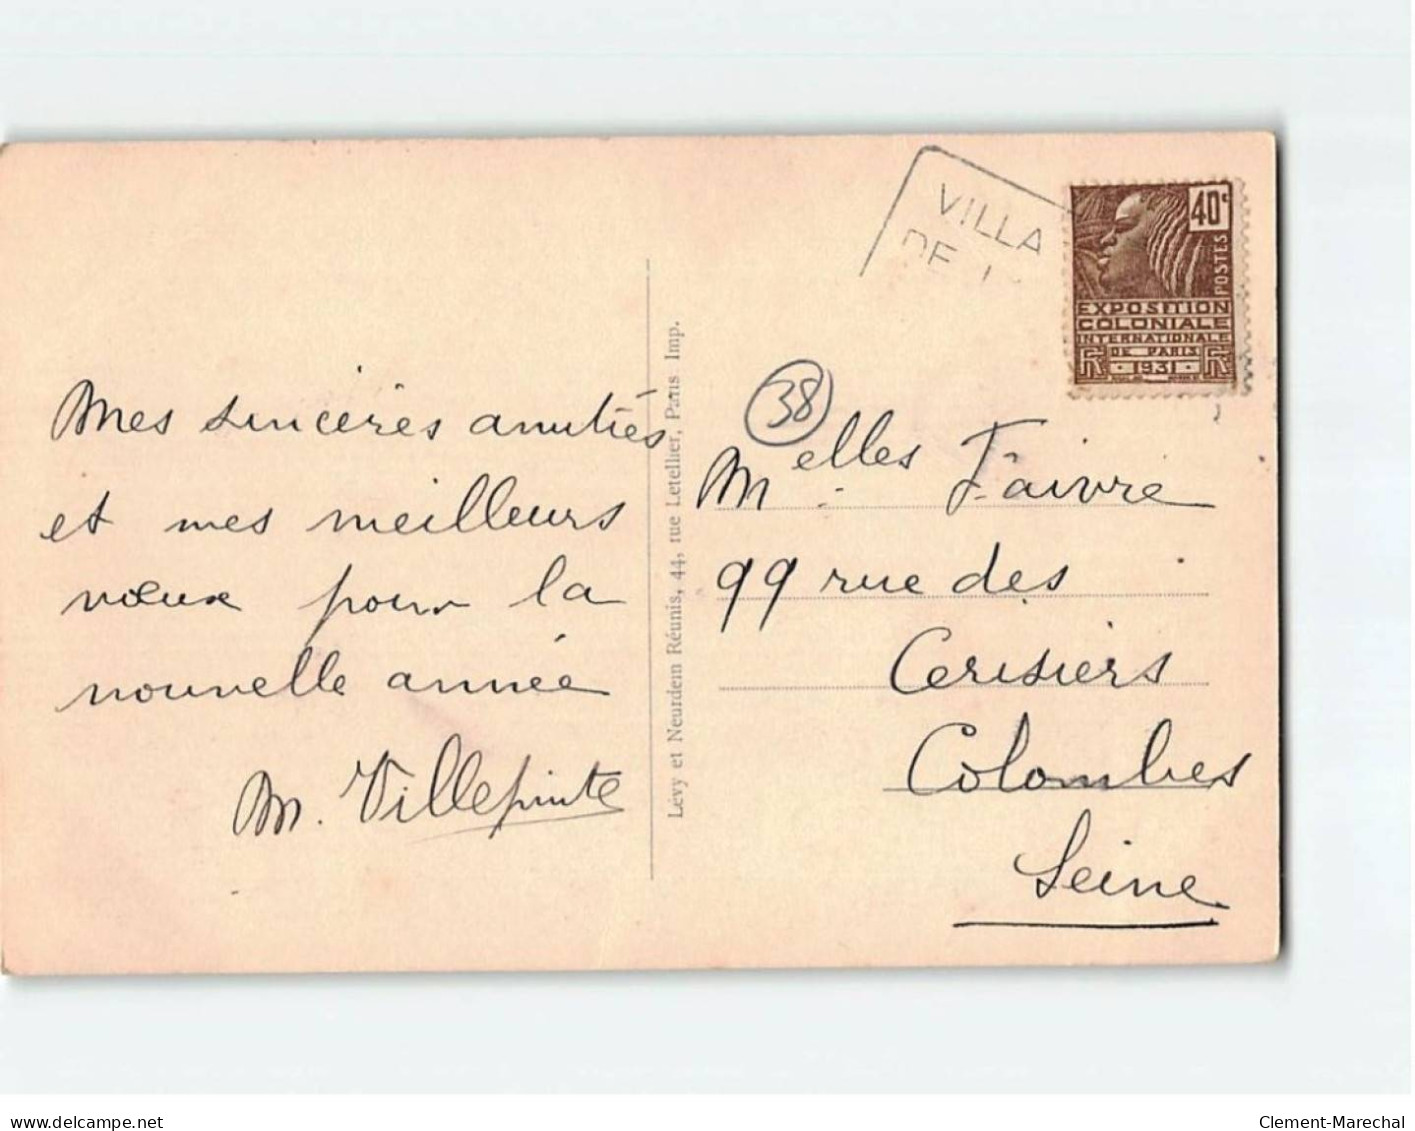 Mes sincères amitiés
et mes meilleurs
vœux pour la
nouvelle année
M. Villepinte
Lévy et Neurdein Réunis, 44, rue Letellier, Paris Imp.
VILLA
DE L
40c
POSTES
EXPOSITION
COLONIALE
INTERNATIONALE
DE PARIS
1931
38
Melles Faivre
99 rue des
Cerisiers
Colombes
Seine
www.delcampe.net
Clement-Marechal